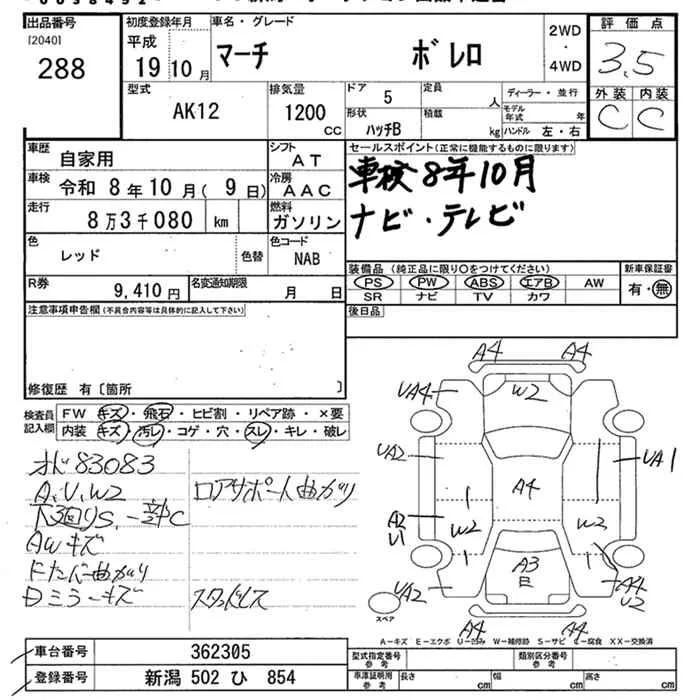 出品番号
[2040]
288
初度登録年月
平成
19 10 月
車名・グレード
マーチ ボレロ
2WD
・
4WD
評価点
3.5
外装 内装
C C
型式
AK12
排気量
1200
cc
ドア
5
形状
ハッチB
定員
人
積載
kg
ディーラー・並行
モデル年式 年
ハンドル 左・右
車歴
自家用
シフト
AT
車検
令和 8年10月( 9日)
冷房
AAC
走行
8万3千080 km
燃料
ガソリン
色
レッド
色替
色コード
NAB
R券
9,410円
名変通知期限
月 日
セールスポイント(正常に機能するものに限ります)
車検8年10月
ナビ・テレビ
装備品 (純正品に限り○をつけてください)
PS PW ABS エアB AW
SR ナビ TV カワ
新車保証書
有・無
後日品
注意事項申告欄(不具合内容等は具体的に記入して下さい)
修復歴 有〔箇所 〕
検査員記入欄
FW キズ・飛石・ヒビ割・リペア跡・×要
内装 キズ・汚レ・コゲ・穴・スレ・キレ・破レ
オド83083
A、U、W2
下廻りS、一部C
AWキズ
Dミラーキズ
ロアサポート曲がり
A4 A4
UA4 W2
UA2 UA1
A4
A2
U1
W2 W2
A3
E
UA2 A4
U2
A4 A4
スペア
A―キズ E―エクボ U―凹み W―補修跡 S―サビ C―腐食 XX―交換済
車台番号
362305
登録番号
新潟 502 ひ 854
型式指定番号
参考
類別区分番号
参考
車庫証明用
参考
長さ cm
幅 cm
高さ cm